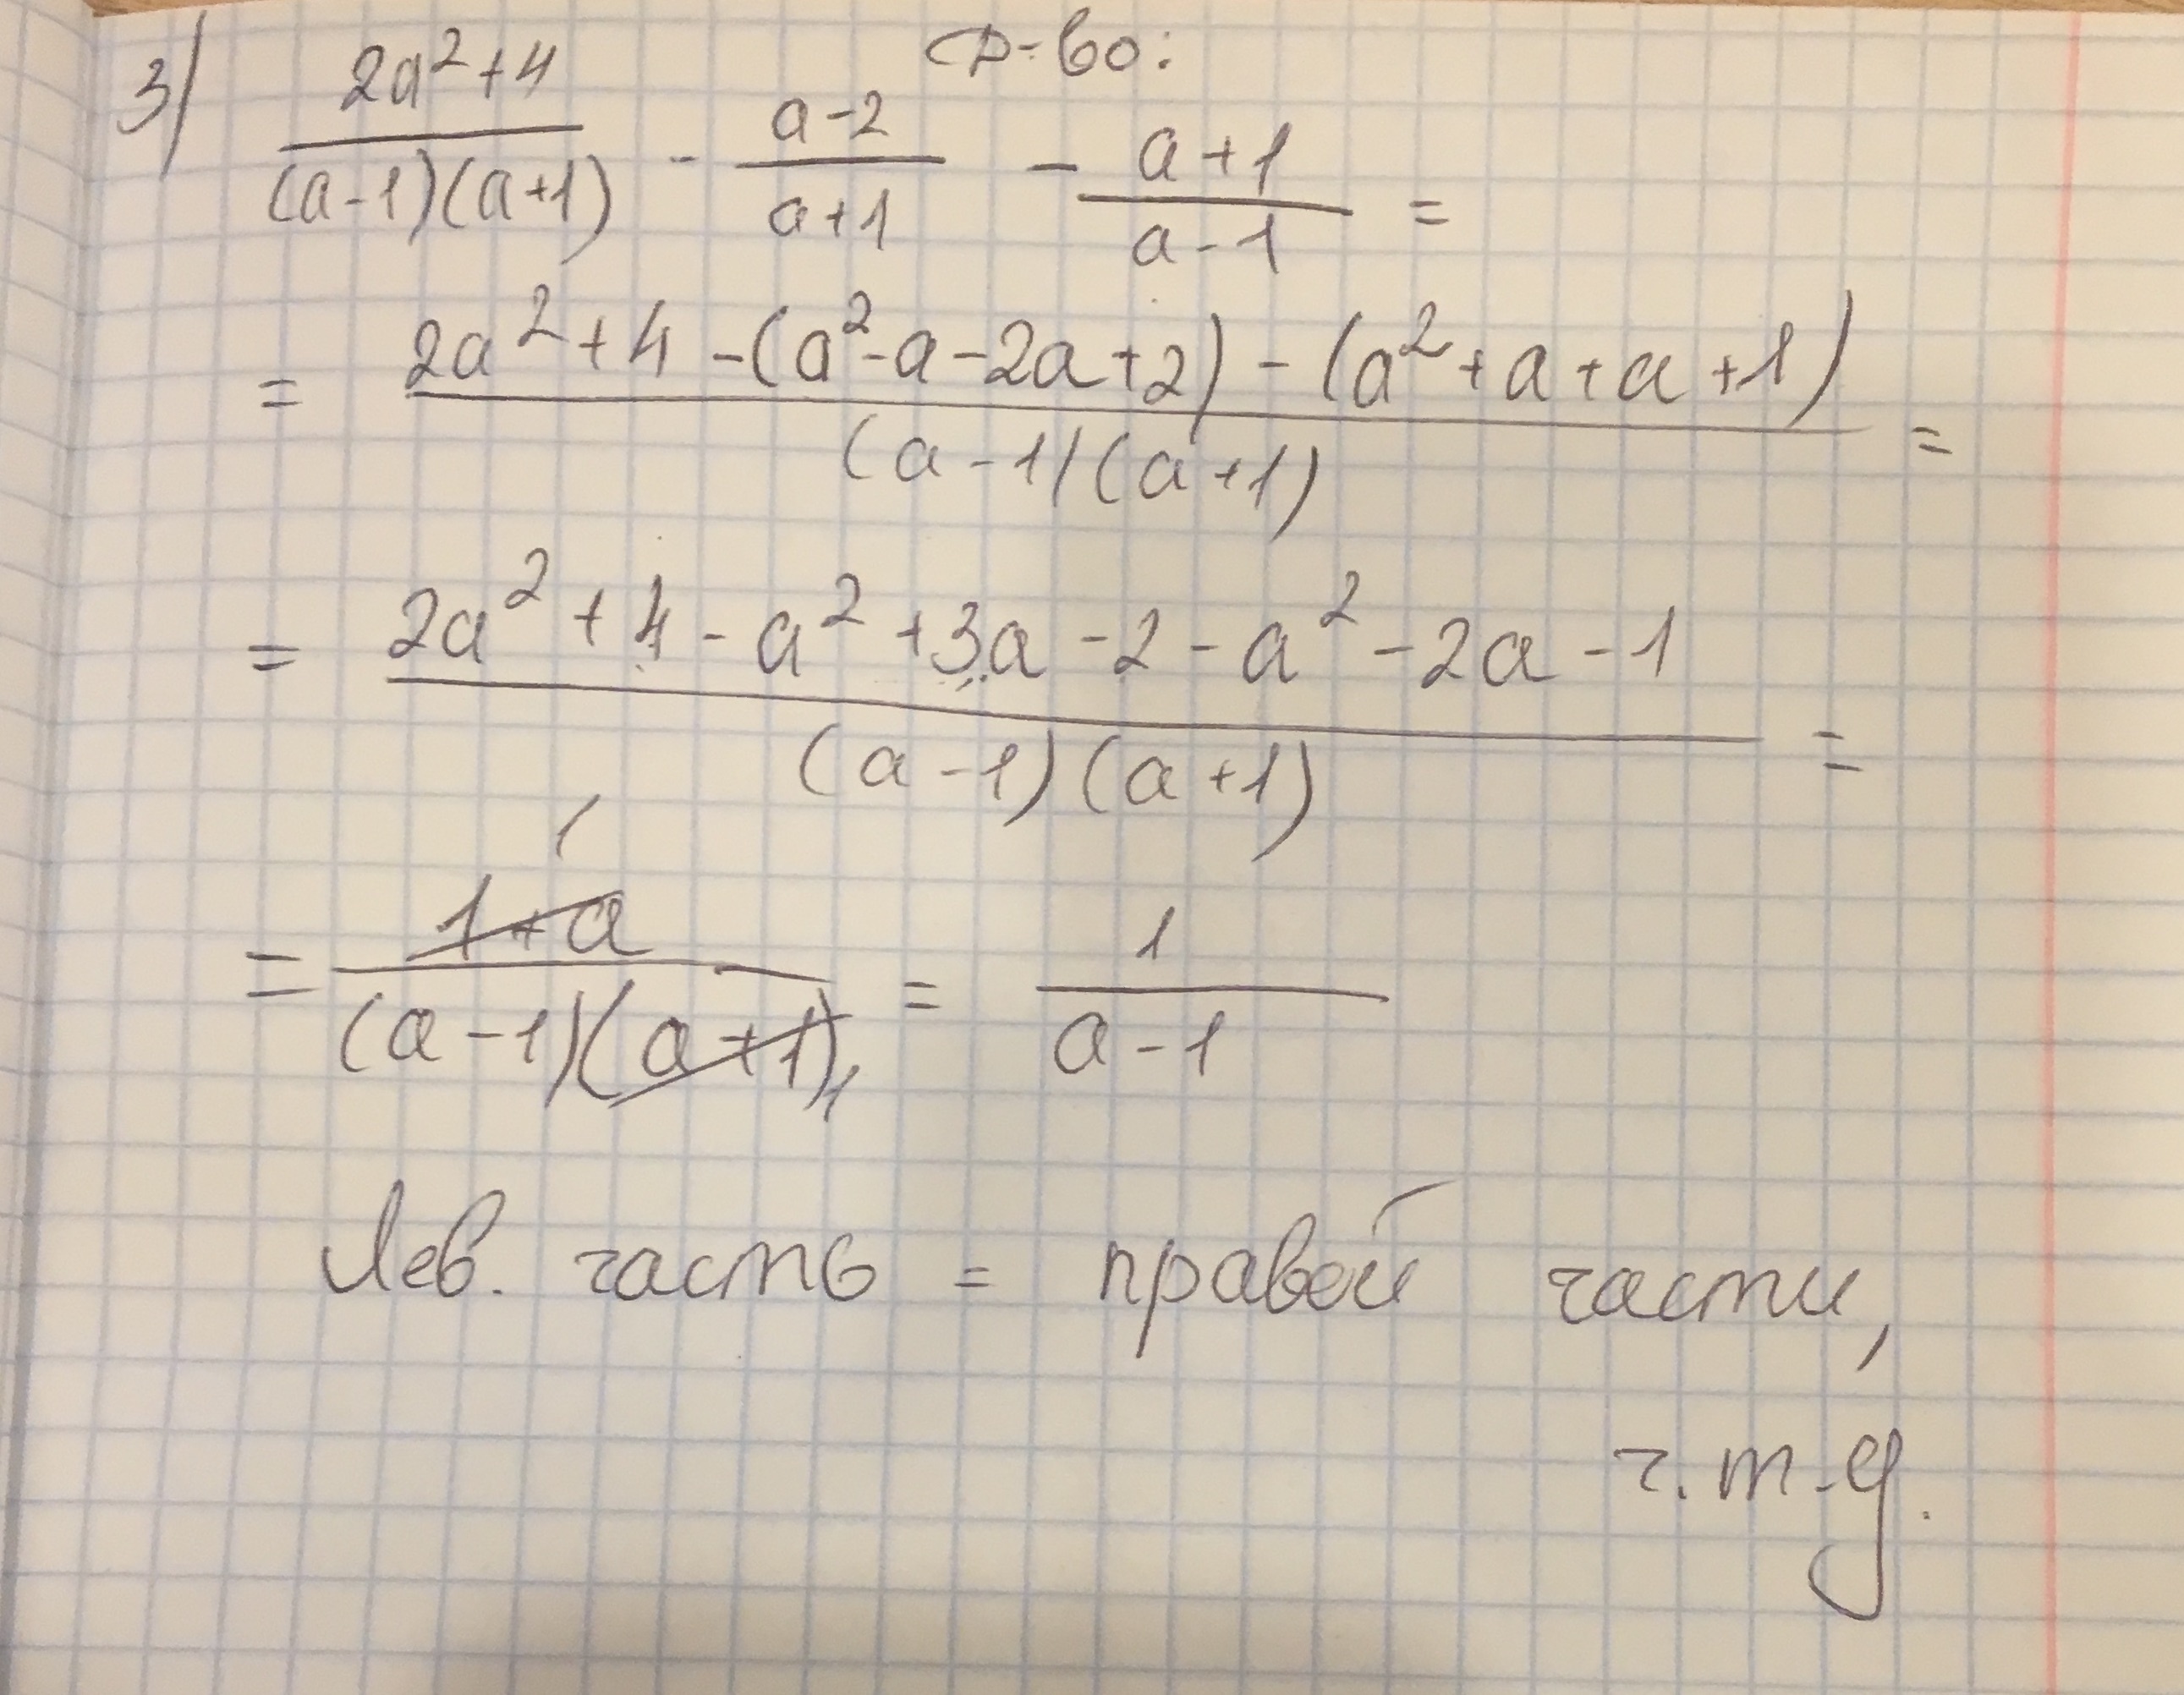 3) (2a²+4)/((a-1)(a+1)) - (a-2)/(a+1) - (a+1)/(a-1) =
Д-во:
= (2a²+4-(a²-a-2a+2)-(a²+a+a+1))/((a-1)(a+1)) =
= (2a²+4-a²+3a-2-a²-2a-1)/((a-1)(a+1)) =
= (1+a)/((a-1)(a+1)) = 1/(a-1)
1
1
Лев. часть = правой части,
ч.т.д.